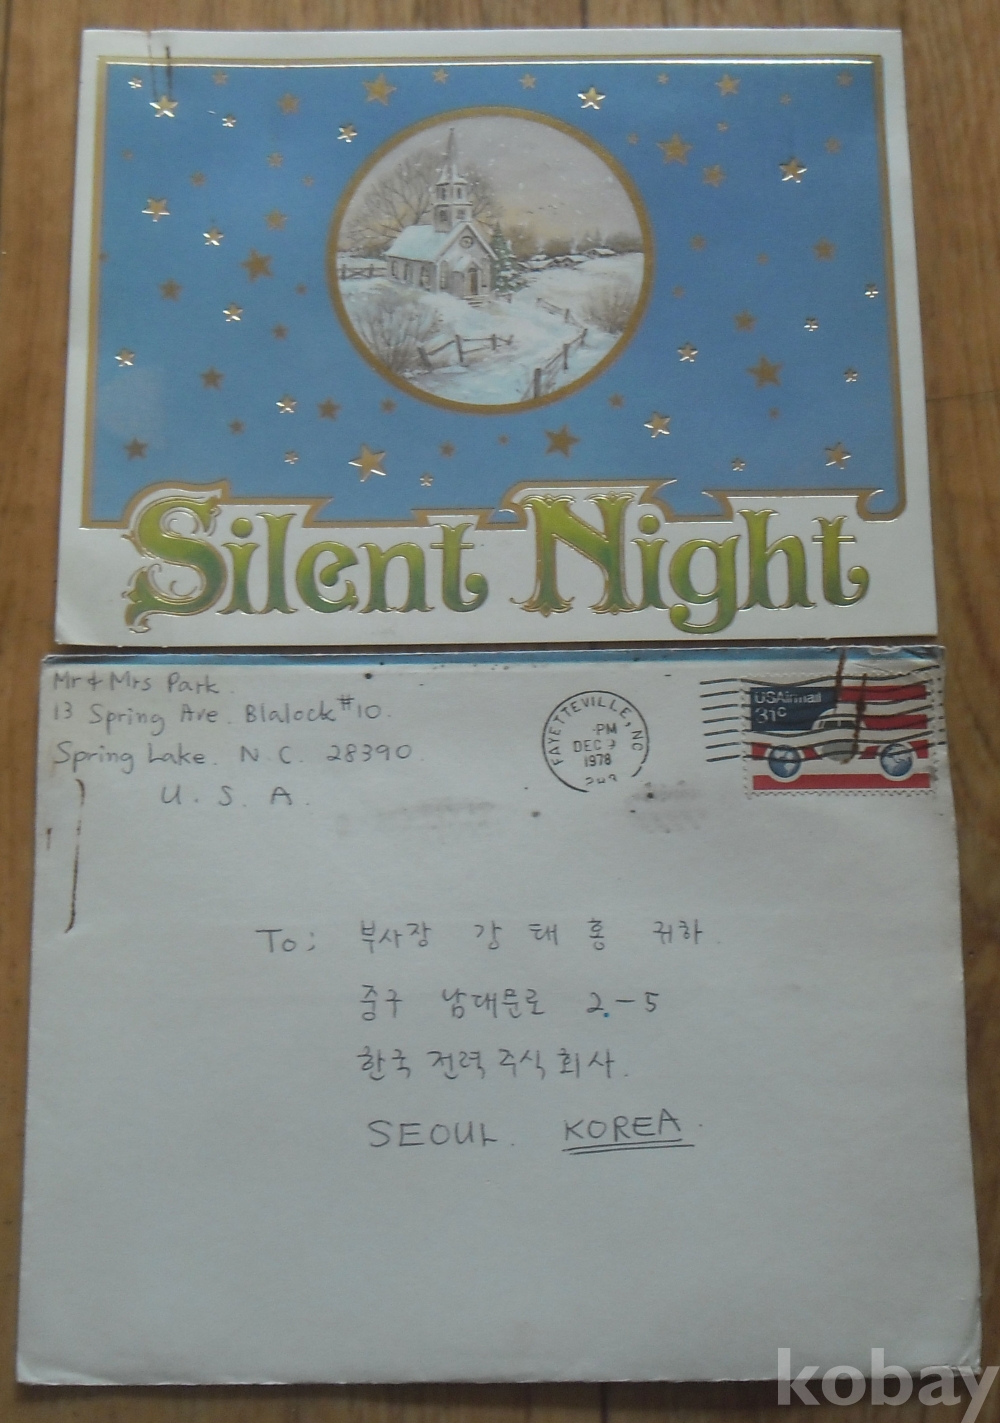 Silent Night
Mr & Mrs Park.
13 Spring Ave. Blalock #10.
Spring Lake. N.C. 28390
U. S. A.
FAYETTEVILLE, NC
PM
DEC
1978
USAirmail
31c
To; 부사장 강 태 홍 귀하.
중구 남대문로 2.-5
한국전력주식회사.
SEOUL. KOREA.
kobay